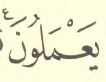 يَعْمَلُونَ ۚ